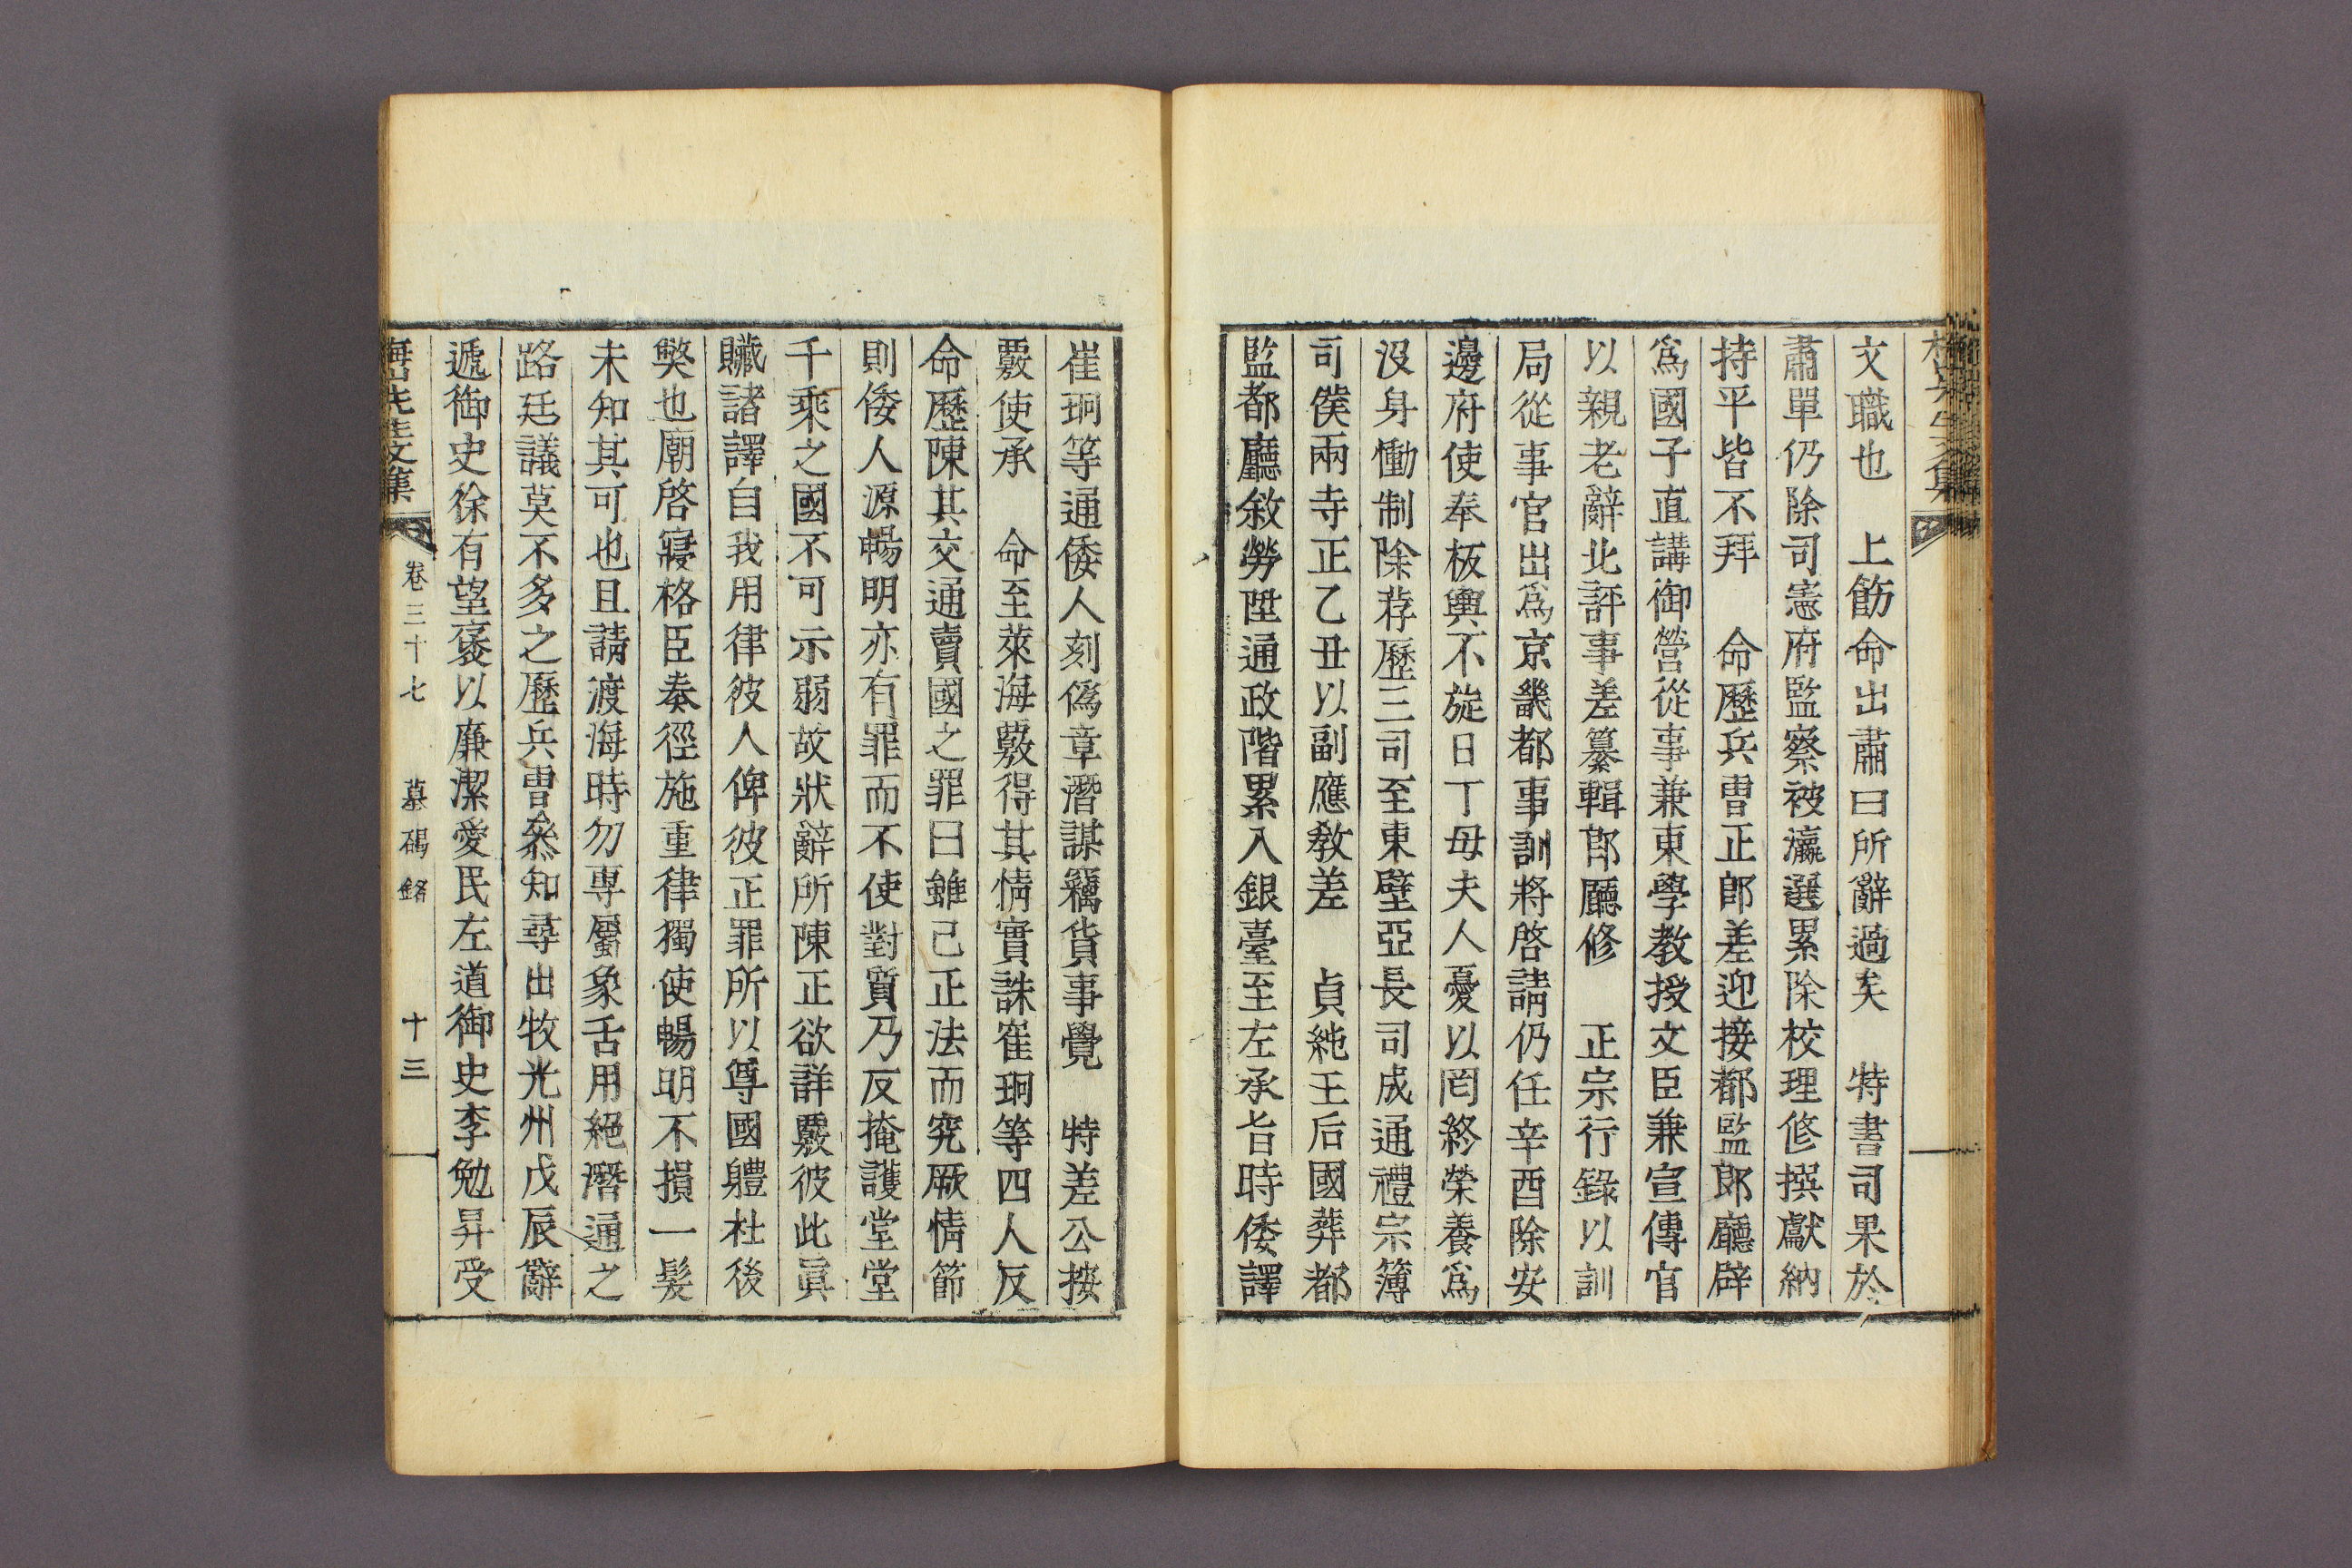 文職也 上飭命出肅曰所辭過矣 特書司果於
肅單仍除司憲府監察被瀛選累除校理修撰獻納
持平皆不拜 命歷兵曹正郎差迎接都監郎廳辟
爲國子直講御營從事兼東學教授文臣兼宣傳官
以親老辭北評事差纂輯郎廳修 正宗行錄以訓
局從事官出爲京畿都事訓將啓請仍任辛酉除安
邊府使奉板輿不旋日丁母夫人憂以罔終榮養爲
沒身慟制除荐歷三司至東壁亞長司成通禮宗簿
司僕兩寺正乙丑以副應教差 貞純王后國葬都
監都廳敘勞陞通政階累入銀臺至左承旨時倭譯
崔珦等通倭人刻僞章潛謀竊貨事覺 特差公按
覈使承 命至萊海覈得其情實誅崔珦等四人反
命歷陳其交通賣國之罪曰雖已正法而究厥情節
則倭人源暢明亦有罪而不使對質乃反掩護堂堂
千乘之國不可示弱故狀辭所陳正欲詳覈彼此眞
贓諸譯自我用律彼人俾彼正罪所以尊國軆杜後
獘也廟啓寢格臣奏徑施重律獨使暢明不損一髮
未知其可也且請渡海時勿專屬象舌用絕潛通之
路廷議莫不多之歷兵曹叅知尋出牧光州戊辰辭
遞御史徐有望褒以廉潔愛民左道御史李勉昇受
先生文集 卷三十七 墓碣銘 十三